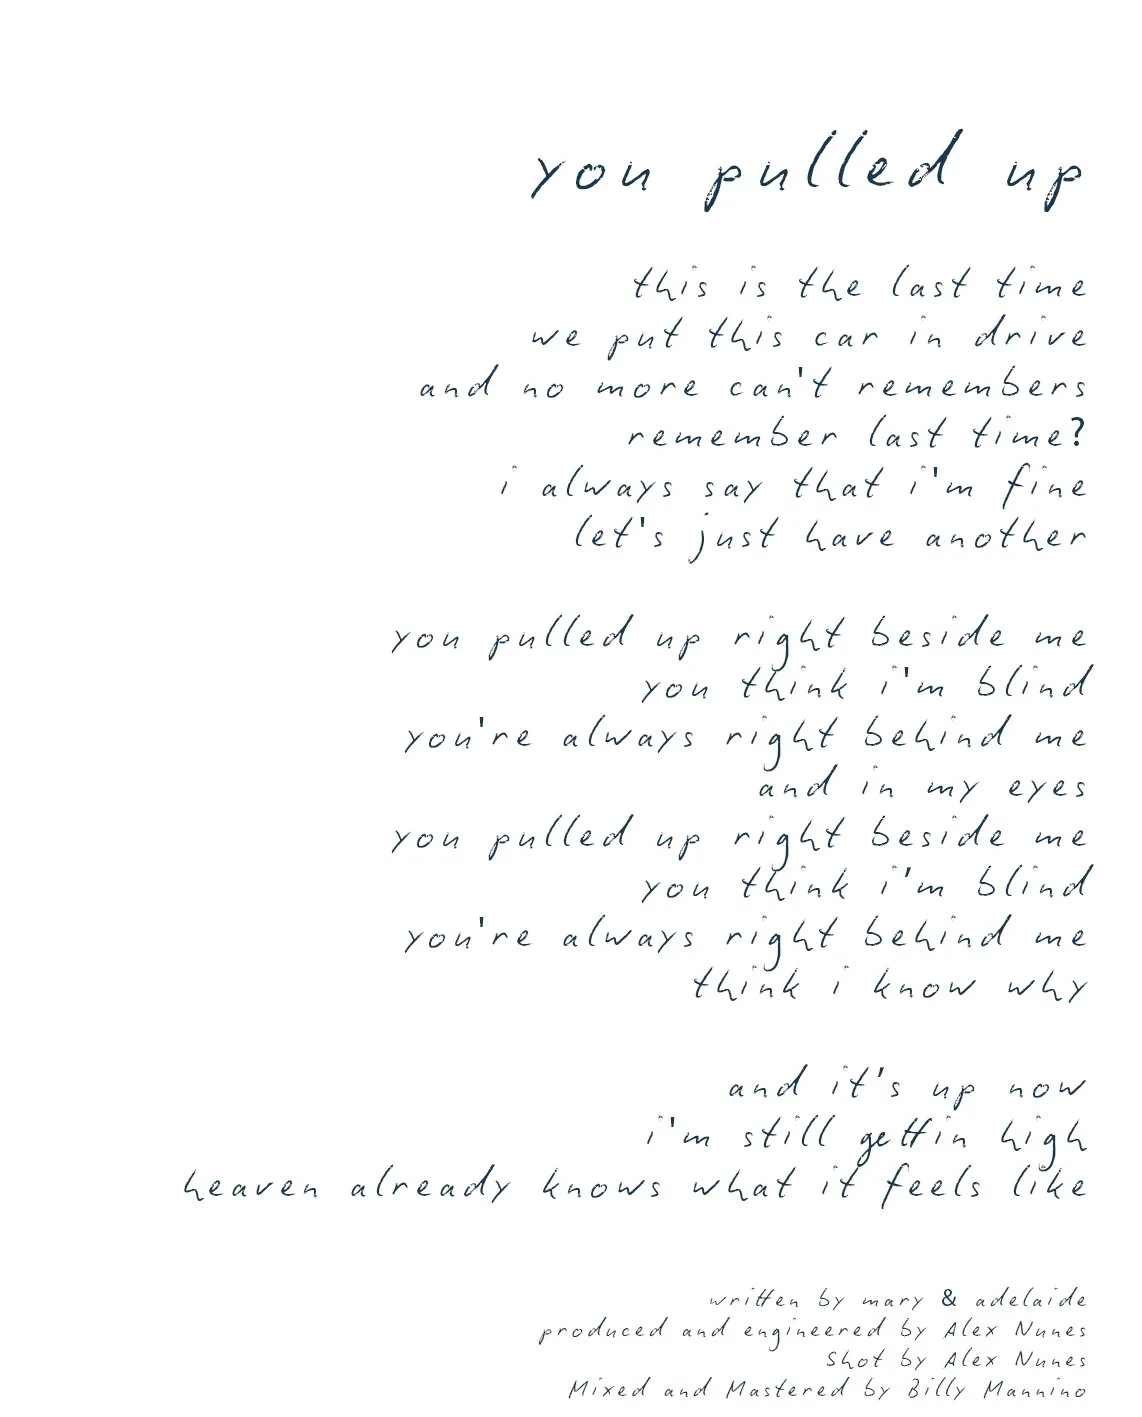 you pulled up
this is the last time
we put this car in drive
and no more can't remembers
remember last time?
i always say that i'm fine
let's just have another
you pulled up right beside me
you think i'm blind
you're always right behind me
and in my eyes
you pulled up right beside me
you think i'm blind
you're always right behind me
think i know why
and it's up now
i'm still gettin high
heaven already knows what it feels like
written by mary & adelaide
produced and engineered by Alex Nunes
Shot by Alex Nunes
Mixed and Mastered by Billy Mannino